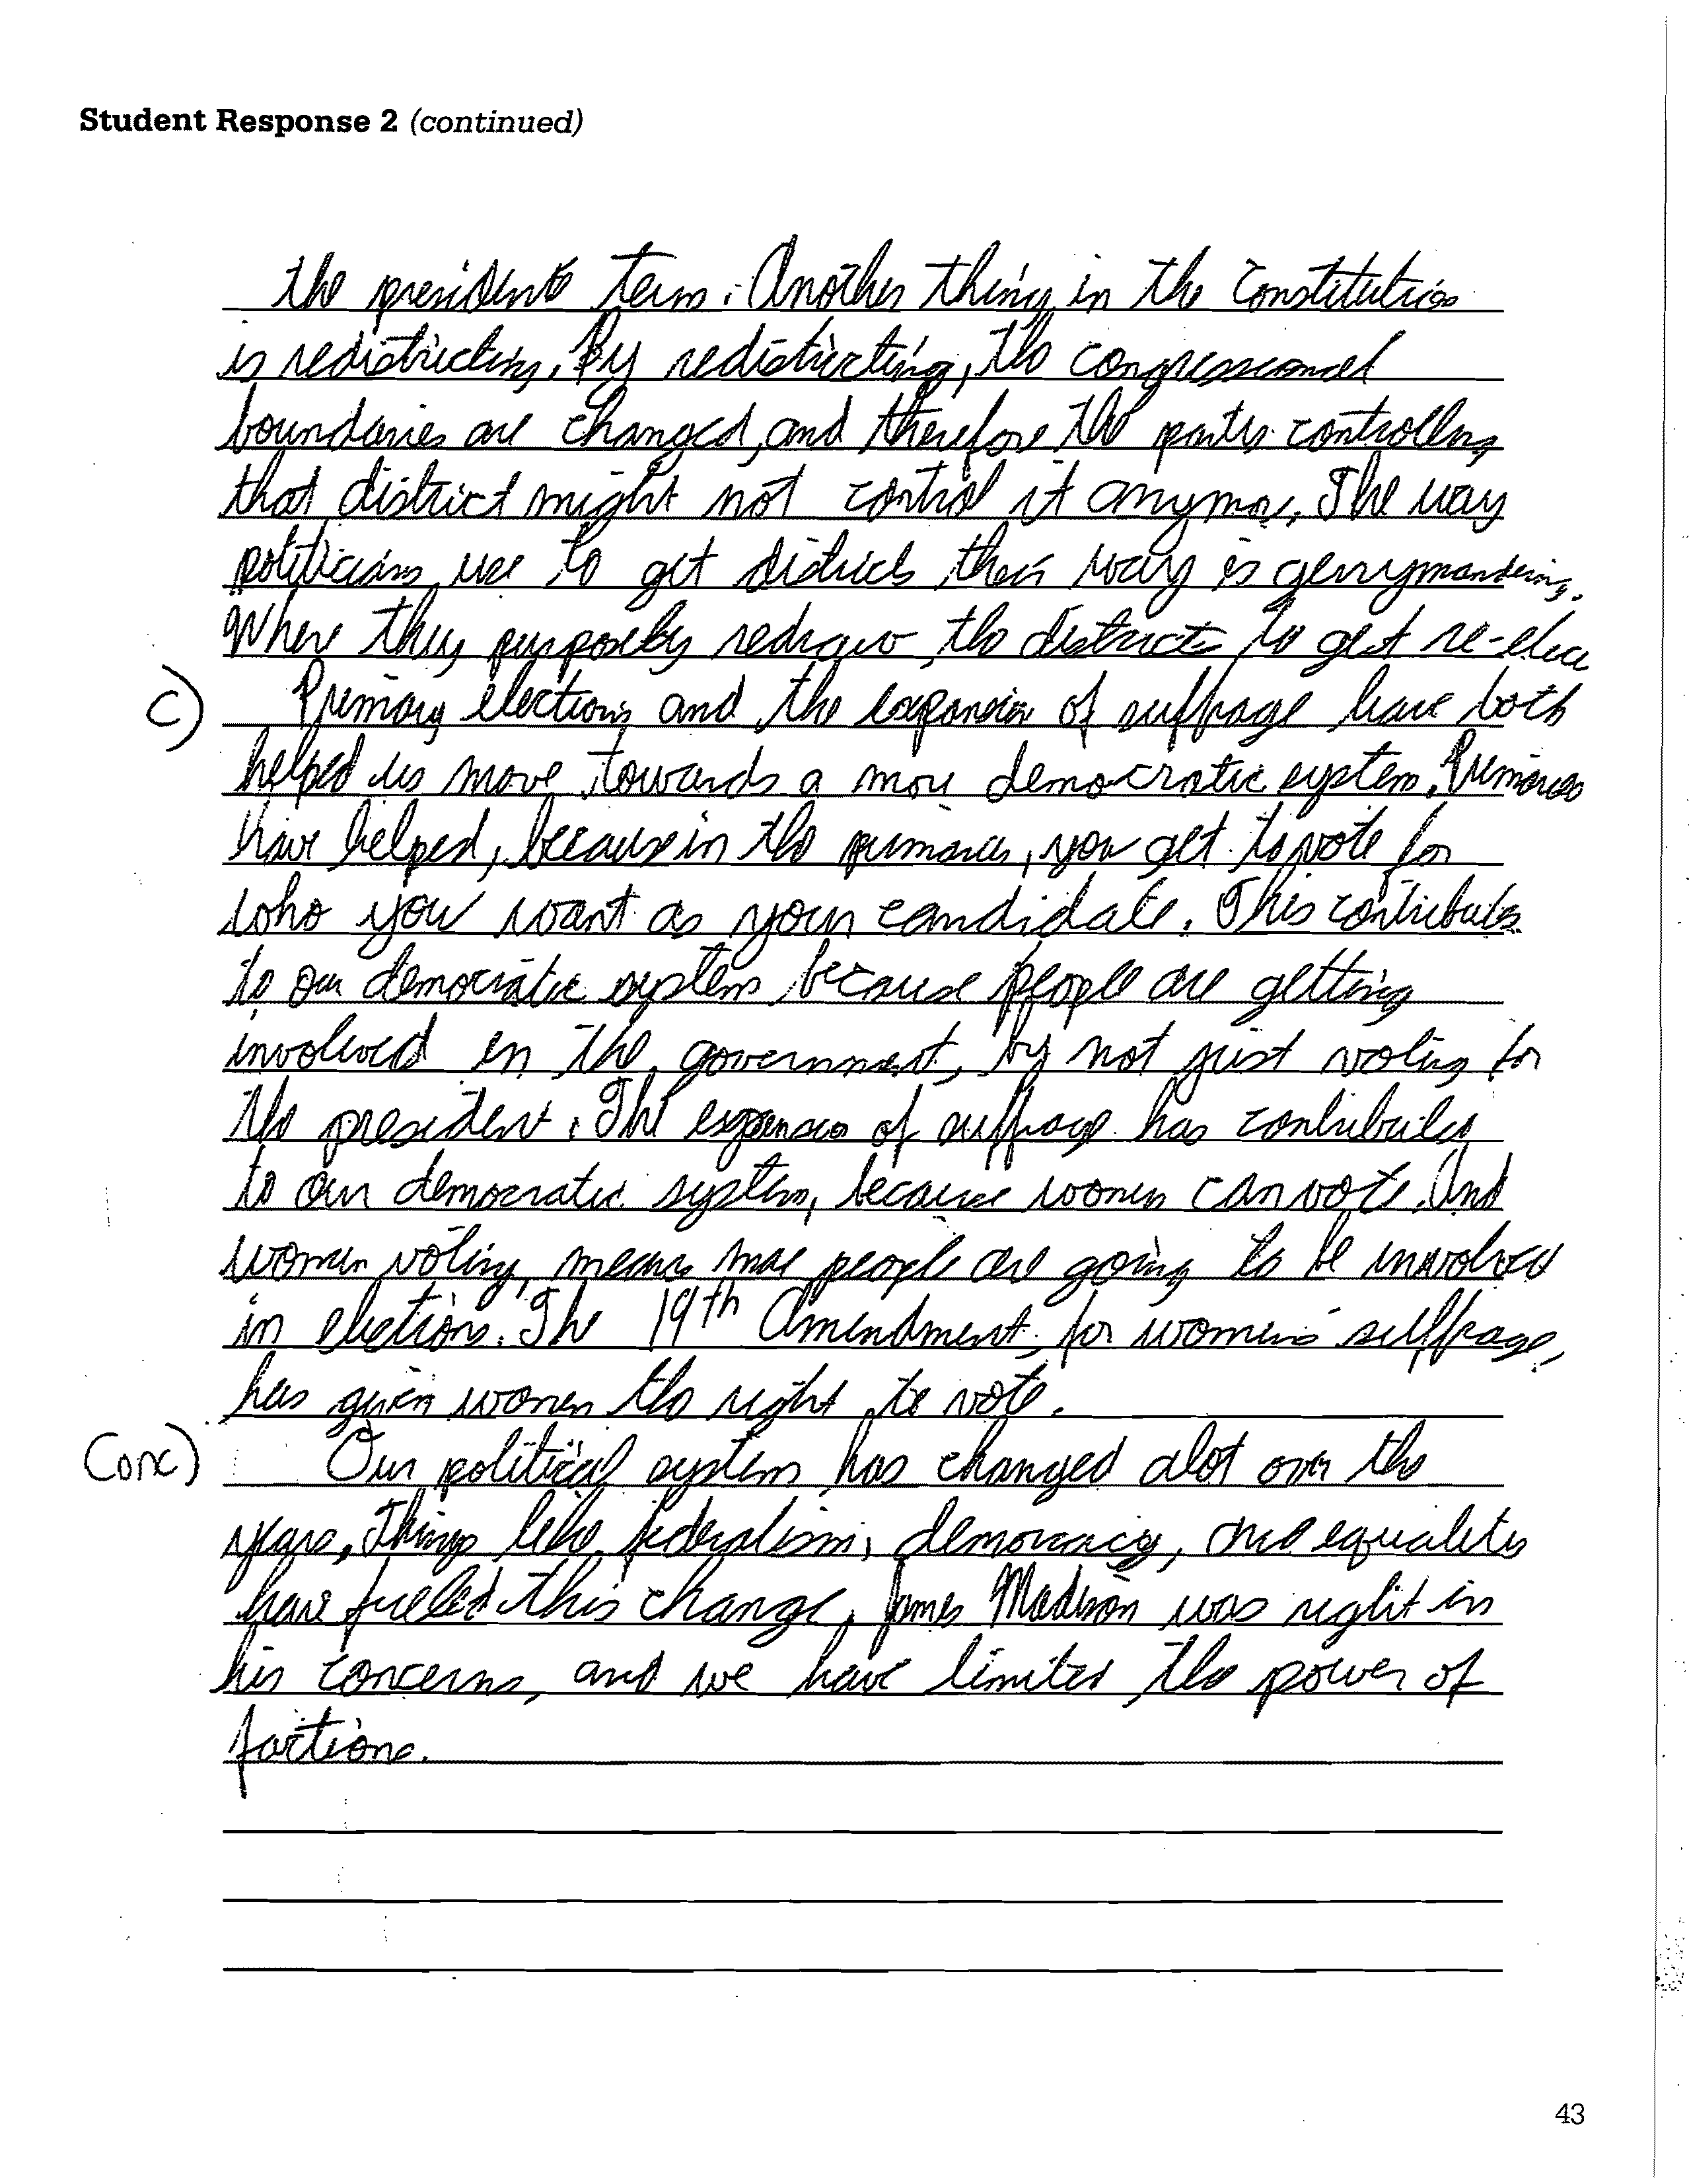 Student Response 2 (continued)
the presidents term. Another thing in the Constitution
is redistricting. By redistricting, the congressional
boundaries are changed, and therefore the party controlling
that district might not control it anymore. The way
politicians use to get districts their way is gerrymandering.
Where they purposely redraw the districts to get re-elec
C) Primary elections and the expansion of suffrage have both
helped us move towards a more democratic system. Primaries
have helped, because in the primaries, you get to vote for
who you want as your candidate. This contributes
to our democratic system because people are getting
involved in the government, by not just voting for
the president. The expansion of suffrage has contributed
to our democratic system, because women can vote. And
women voting, means more people are going to be involved
in elections. The 19th Amendment, for women's suffrage,
has given women the right to vote.
Conc) Our political system has changed alot over the
years. Things like federalism, democracy, and equality
have fueled this change. James Madison was right in
his concerns, and we have limited the power of
factions.
43